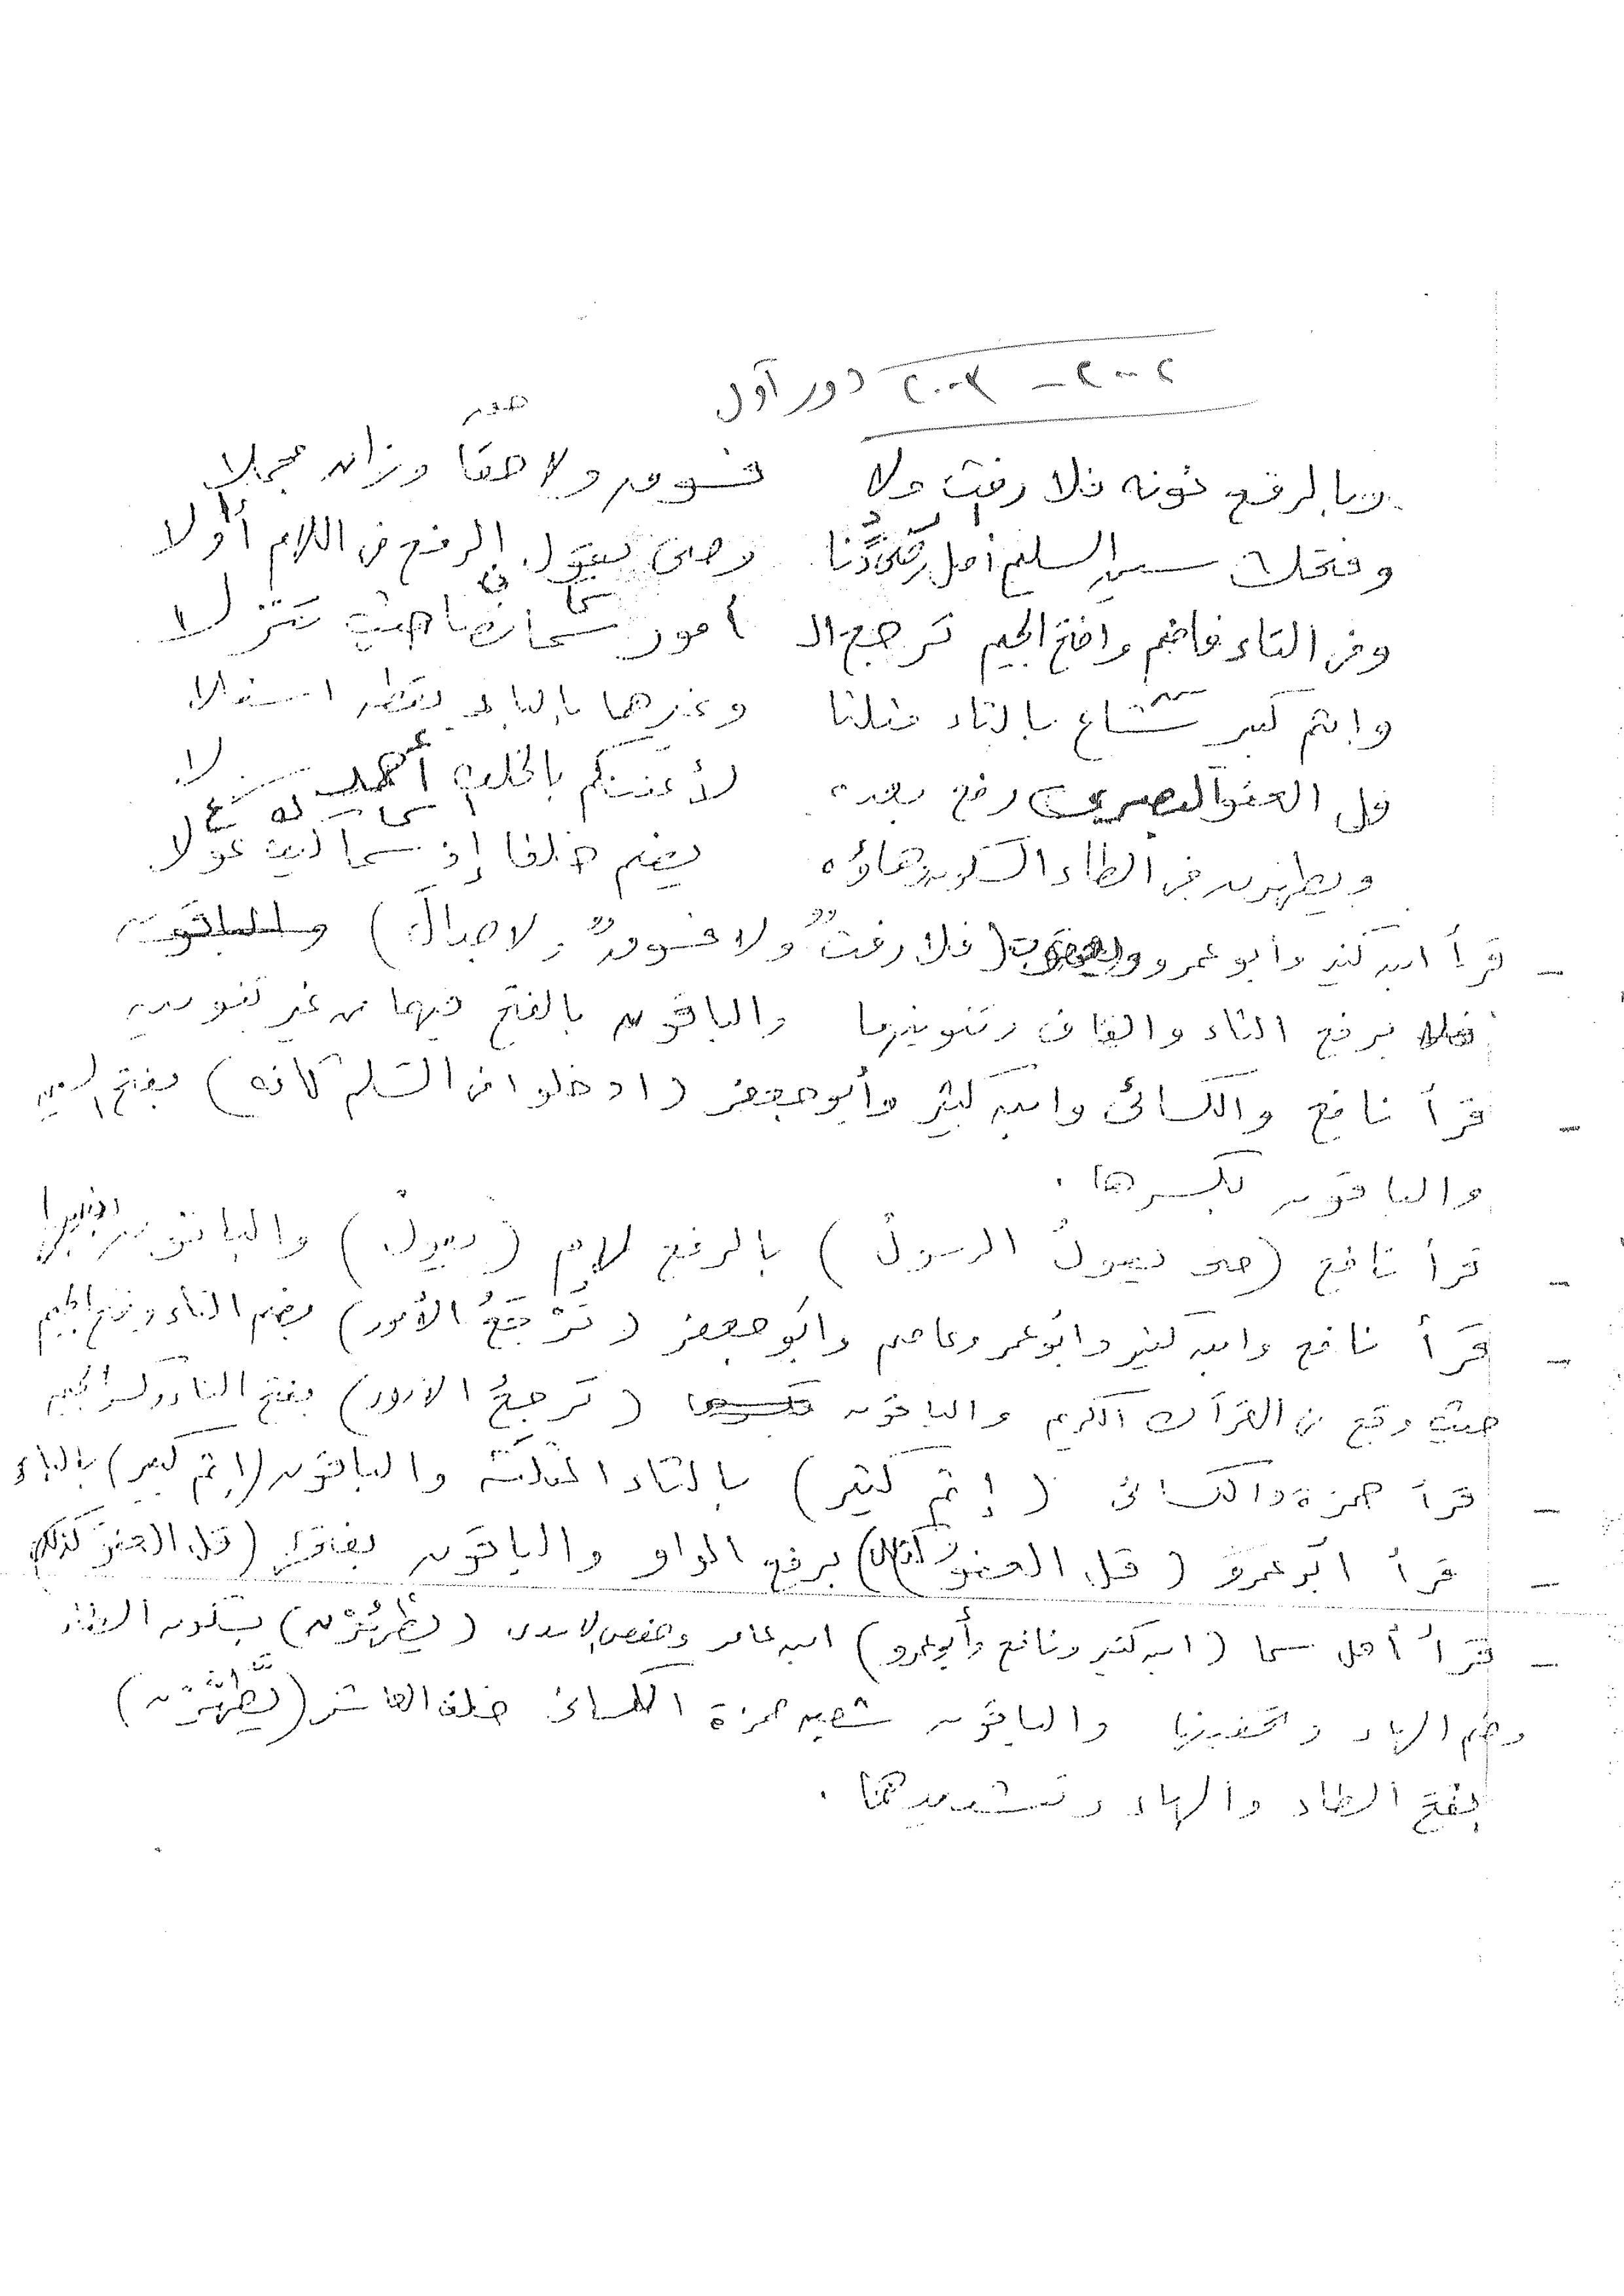 ٢٠٠٢ – ٢٠٠٣ دور أول
وبالرفع نونه فلا رفث ولا فسوق ولا حقا وزان مجملا
وفتحك سين السلم أصل رضى دنا وحتى يقول الرفع في اللام أولا
وفي التاء فاضمم وافتح الجيم ترجع الـ أمور سما نصا حيث تنزلا
وإثم كبير شاع بالثاء مثلثا وغيرهما بالباء نقطة اسفلا
قل العفو البصري رفع بعده لأعنتكم بالخلف أحمد لا
ويطهرن في الطاء السكون وهاؤه يضم خفا إذ سما كيف عولا
– قرأ ابن كثير وأبو عمرو ويعقوب (فلا رفثٌ ولا فسوقٌ ولا جدالَ) والباقون
برفع الثاء والقاف وتنوينهما والباقون بالفتح فيهما من غير تنوين
– قرأ نافع والكسائى وابن كثير وأبو جعفر (ادخلوا في السَّلم كافة) بفتح السين
والباقون بكسرها .
– قرأ نافع (حتى يقولُ الرسولُ) بالرفع للام (يقولُ) والباقون بنصبها
– قرأ نافع وابن كثير وابو عمر وعاصم وابو جعفر (تُرْجَعُ الأمور) بضم التاء وفتح الجيم
حيث وقع في القرآن الكريم والباقون (ترجعُ الامور) بفتح التاء وكسر الجيم
– قرأ حمزة والكسائى (إثم كثير) بالثاء المثلثة والباقون (إثم كبير) بالباء
– قرأ ابو عمرو (قل العفوُ كذلك) برفع الواو والباقون بفتح (قل العفوَ كذلك
– قرأ أهل سما (ابن كثير ونافع وأبو عمرو) ابن عامر وحفص الاسدى (يطْهُرْن) بسكون الطاء
وضم الهاء وتخفيفها والباقون شعبه حمزة الكسائى خلف العاشر (يطَّهَّرْن)
بفتح الطاء والهاء وتشديدهما .